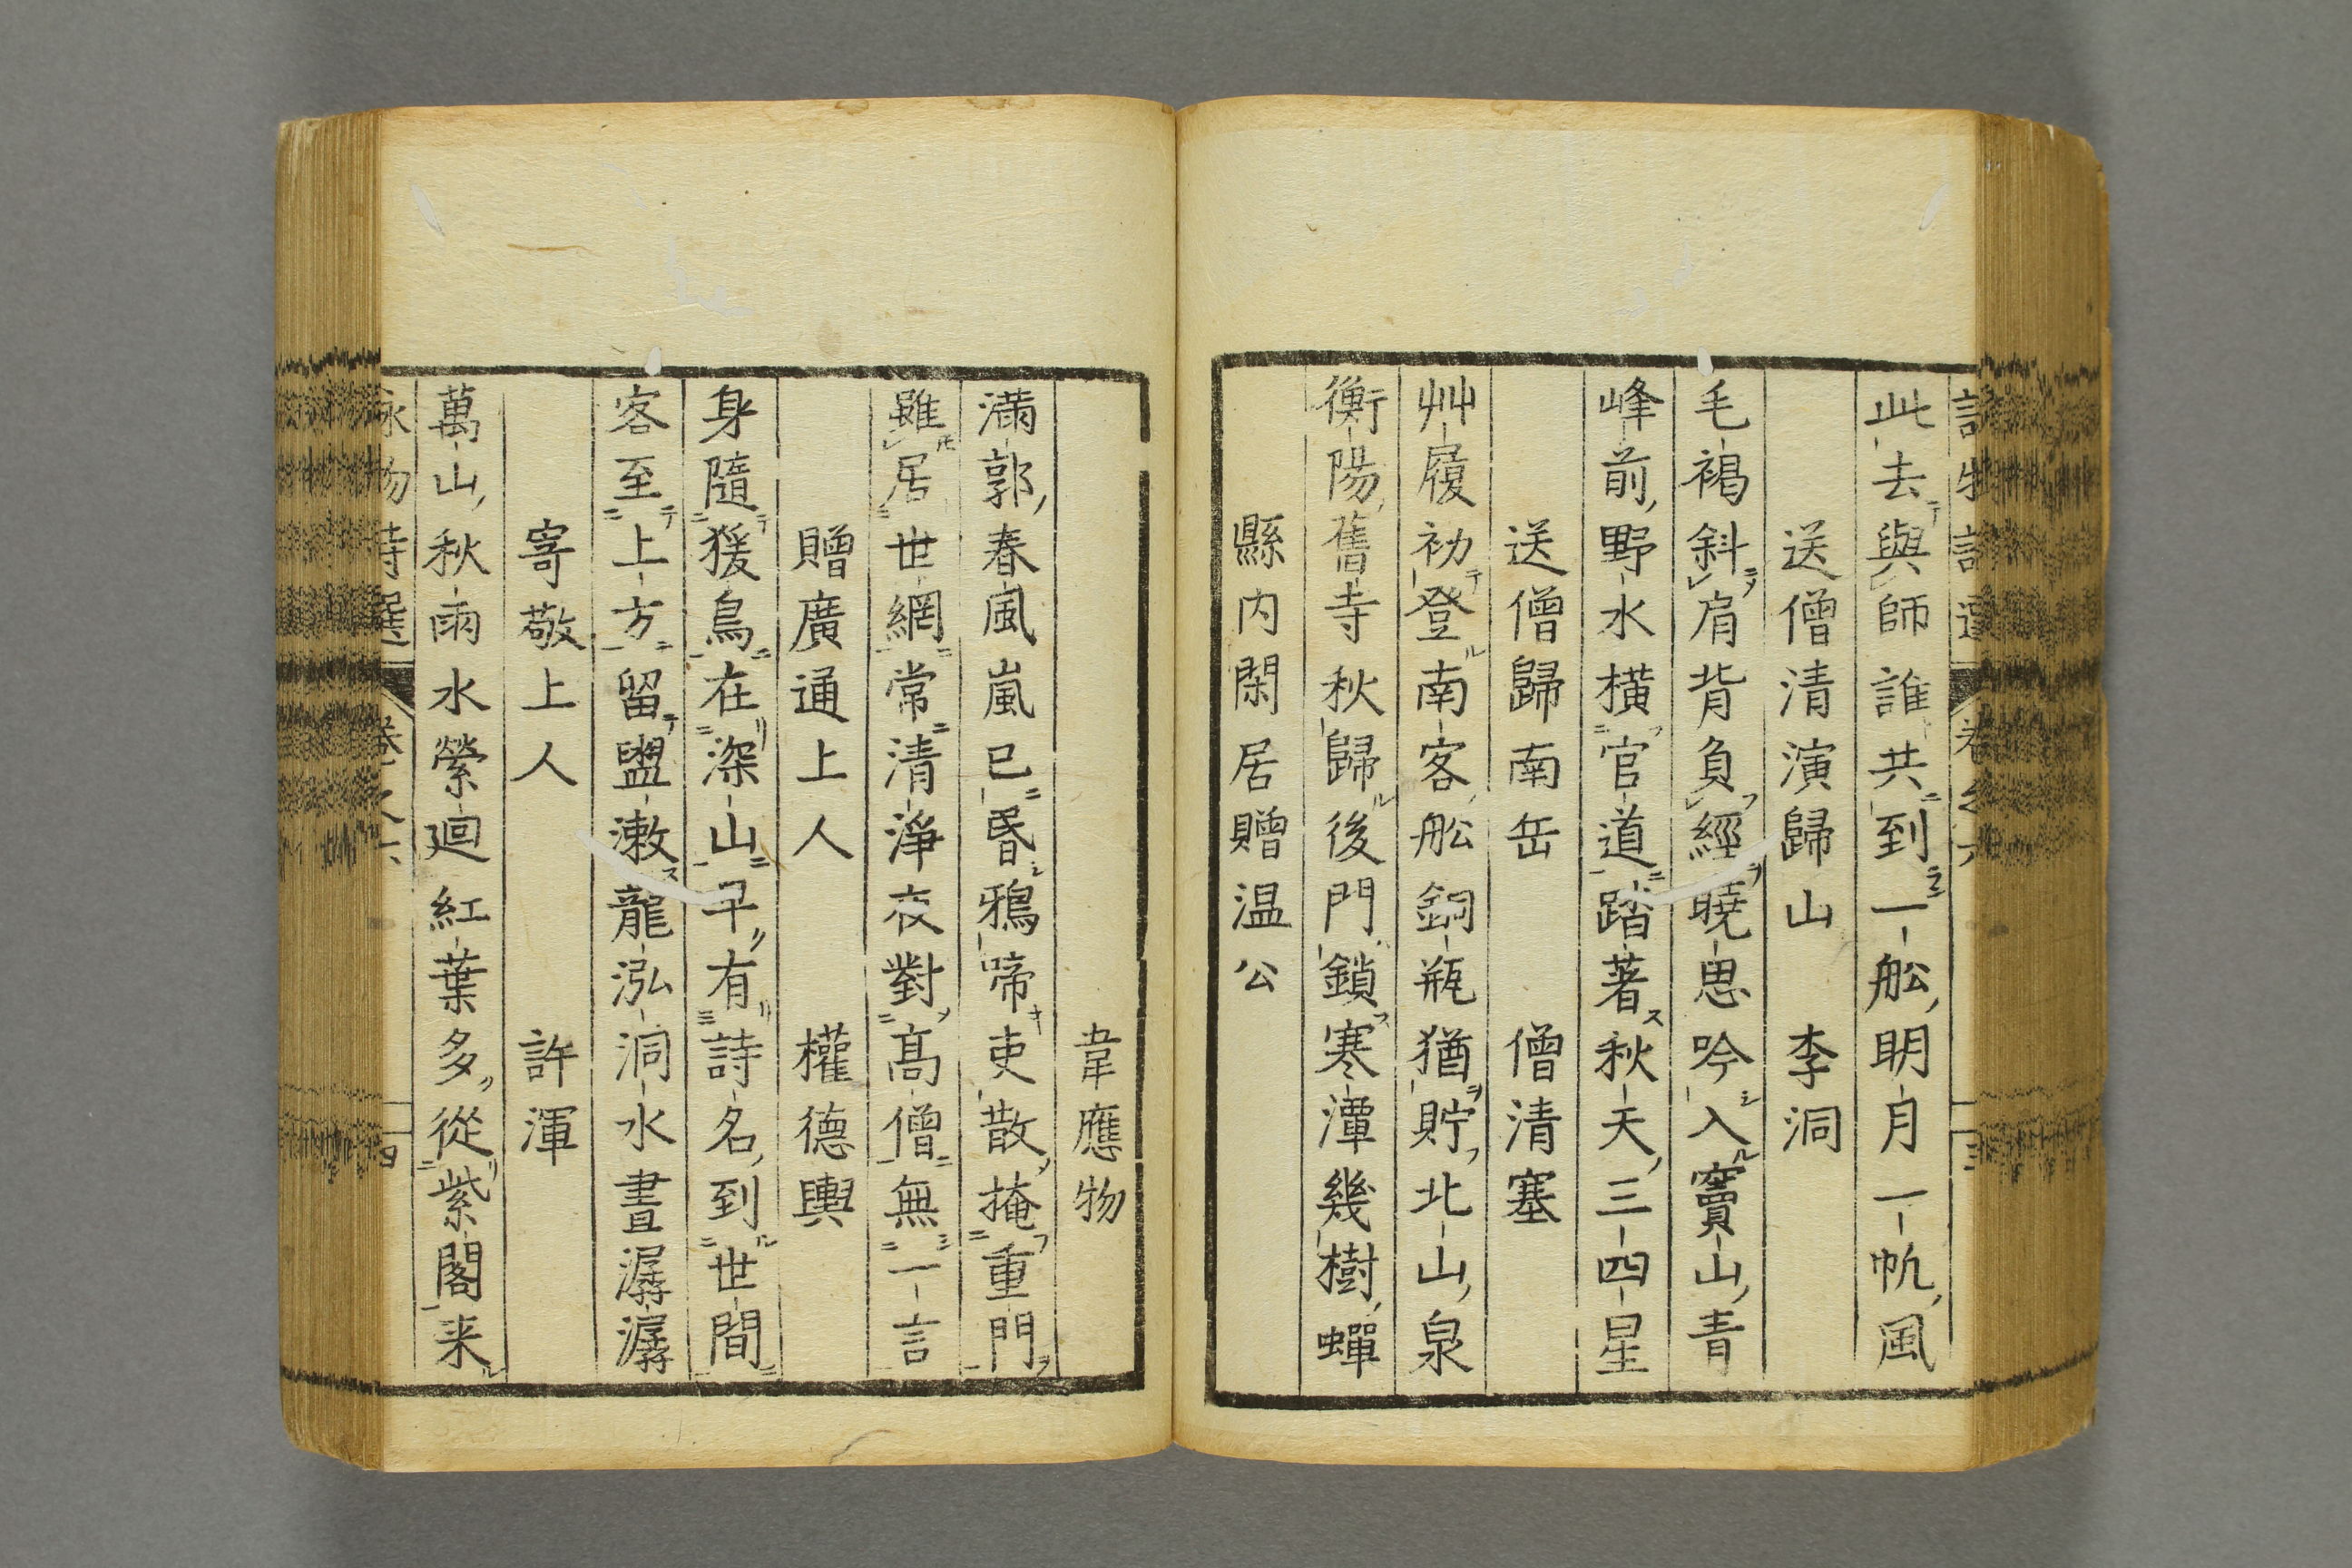 此去與師誰共到一舩明月一帆風
送僧清演歸山 李洞
毛褐斜肩背負經曉思吟入竇山青
峰前野水橫官道踏著秋天三四星
送僧歸南岳 僧清塞
艸履初登南客舩銅瓶猶貯北山泉
衡陽舊寺秋歸後門鎖寒潭幾樹蟬
縣内閑居贈温公
韋應物
滿郭春風嵐已昏鴉啼吏散掩重門
雖居世網常清淨夜對髙僧無一言
贈廣通上人 權德輿
身隨猨鳥在深山早有詩名到世間
客至上方留盥漱龍泓洞水晝潺潺
寄敬上人 許渾
萬山秋雨水縈迴紅葉多從紫閣来